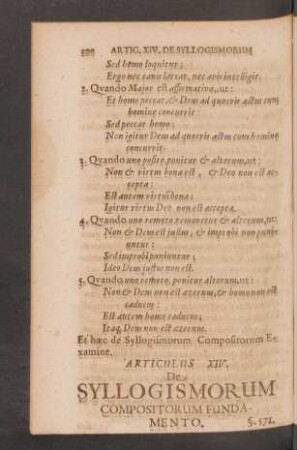 ARTIC. XIV. DE SYLLOGISMORUM
Sed homo loquitur;
Ergo nec canis latrat, nec avis intelligit.
2. Qvando Major est affirmativa, ut:
Et homo peccat, & Deus ad quemvis actum cum
homine concurrit:
Sed peccat homo;
Non igitur Deus ad quemvis actum cum homine
concurrit.
3. Quando uno posito, ponitur & alterum, ut:
Non & virtus bona est, & Deo non est ac-
cepta:
Est autem virtus bona;
Igitur virtus Deo non est accepta.
4. Quando uno remoto, removetur & alterum, ut:
Non & Deus est justus, & improbi non puni-
untur:
Sed improbi puniuntur;
Ideo Deus justus non est.
5. Quando uno remoto, ponitur alterum, ut:
Non & Deus non est æternus, & homo non est
caducus:
Est autem homo caducus;
Itaq; Deus non est æternus.
Et hæc de Syllogismorum Compositorum E-
xamine.
ARTICULUS XIV.
De
SYLLOGISMORUM
COMPOSITORUM FUNDA-
MENTO.
§. 571.